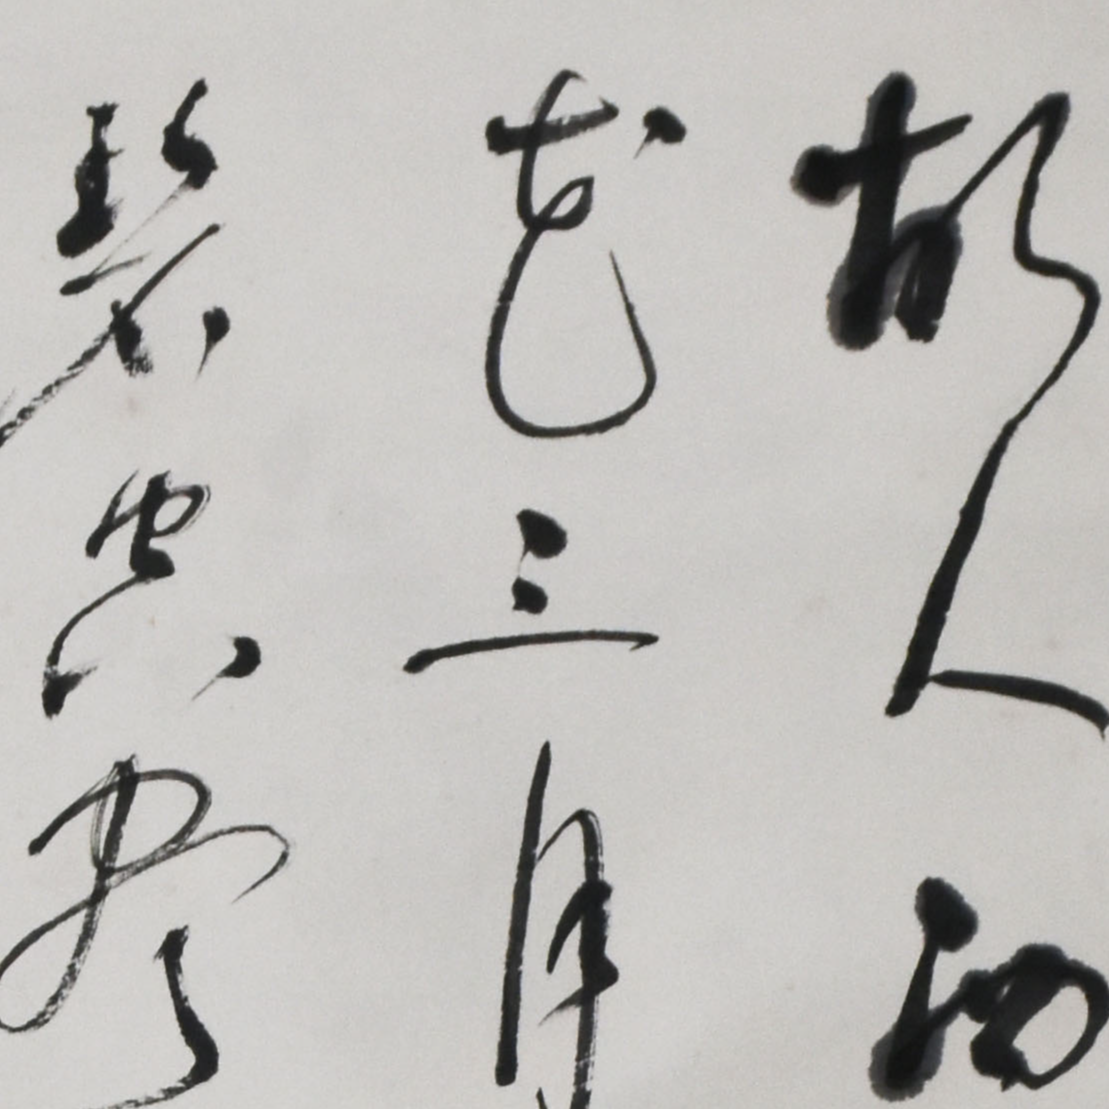 故人西
花三月
碧空尽